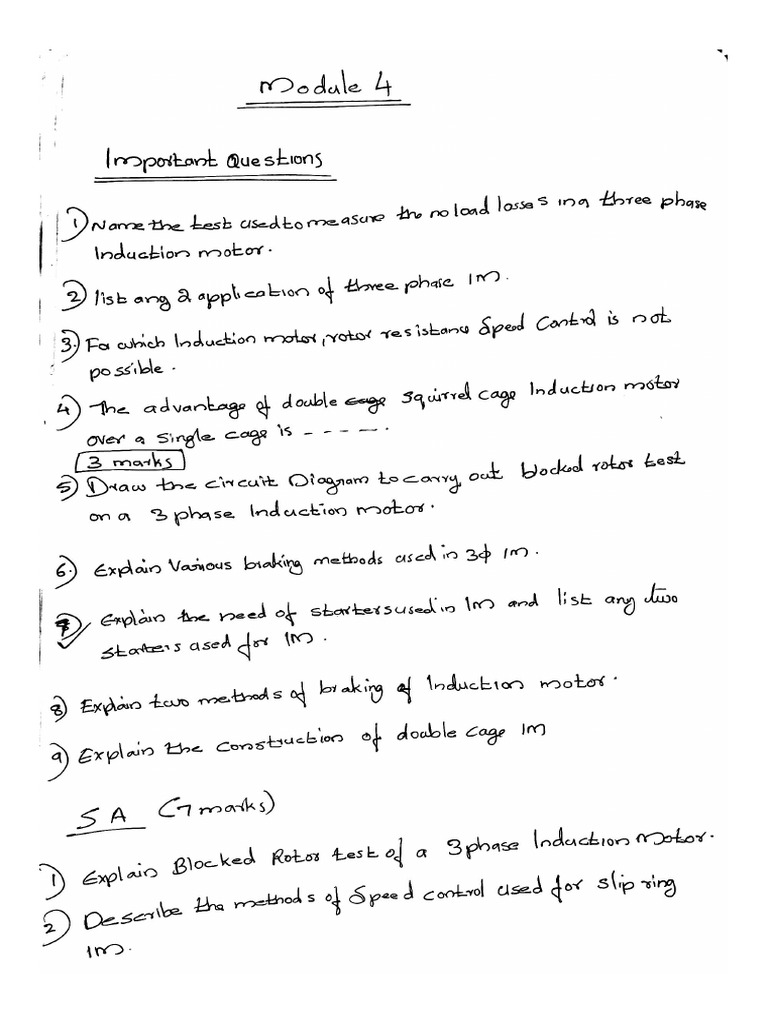 Module 4
Important Questions
1) Name the test used to measure the no load losses in a three phase
Induction motor.
2) list any 2 application of three phase IM.
3. For which Induction motor, rotor resistance Speed Control is not
possible.
4) The advantage of double squirrel cage Induction motor
over a single cage is -----.
3 marks
5) Draw the circuit Diagram to carry out blocked rotor test
on a 3 phase Induction motor.
6.) Explain Various braking methods used in 3ϕ IM.
7) Explain the need of starters used in IM and list any two
starters used for IM.
8) Explain two methods of braking of Induction motor.
9) Explain the construction of double cage IM
SA (7 marks)
1) Explain Blocked Rotor test of a 3 phase Induction Motor.
2) Describe the methods of Speed control used for slip ring
IM.